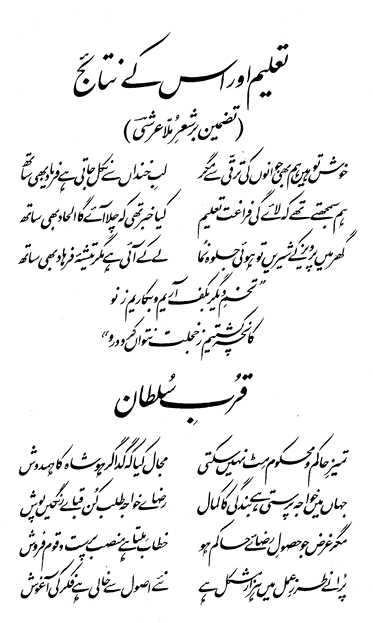 تعلیم اور اس کے نتائج
(تضمین بر شعرِ ملّا عرشی)
خوش تو ہیں ہم بھی جوانوں کی ترقی سے مگر لبِ خنداں سے نکل جاتی ہے فریاد بھی ساتھ
ہم سمجھتے تھے کہ لائے گی فراغت تعلیم کیا خبر تھی کہ چلا آئے گا الحاد بھی ساتھ
گھر میں پرویز کے شیریں تو ہوئی جلوہ نما لے کے آئی ہے مگر تیشۂ فرہاد بھی ساتھ
”تخمِ دیگر بکف آریم و بکاریم ز نو
کانچہ کشتیم ز خجلت نتواں کرد درو“
قربِ سُلطان
تمیزِ حاکم و محکوم مٹ نہیں سکتی مجال کیا کہ گداگر ہو شاہ کا ہمدوش
جہاں میں خواجہ پرستی ہے بندگی کا کمال رضائے خواجہ طلب کن قبائے رنگیں پوش
مگر غرض جو حصولِ رضائے حاکم ہو خطاب ملتا ہے منصب پرست و قوم فروش
پرانے طرزِ عمل میں ہزار مشکل ہے نئے اصول سے خالی ہے فکر کی آغوش